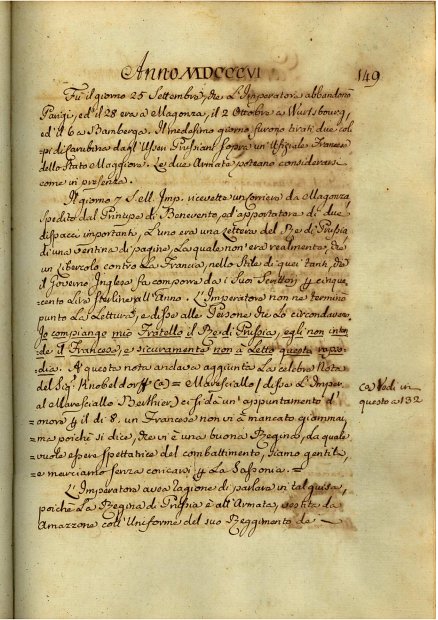 Anno MDCCCVI
149
Fù il giorno 25 Settembre, che L'Imperatore abbandonò
Parigi, ed il 28 era à Magonza, il 2 Ottobre a Wurtsbourg,
ed il 6 a Bamberga. Il medesimo giorno furono tirati due col-
pi di Carabina dagl'Usseri Prussiani sopra un'Uffiziale Francese
dello Stato Maggiore. Le due Armate poteano considerarsi
come in presenza.
Il giorno 7 S. M. Imp. ricevette un Corriero da Magonza,
spedito dal Principe di Benevento, ed apportatore di due
dispacci importanti. L'uno era una Lettera del Rè di Prussia
di una ventina di pagine, La quale non'era realmente, che
un Libercolo contro La Francia, nello Stile di quei tanti, che
il Governo Inglese fa comporre da i suoi Scrittori p cinque-
-cento Lire sterline all'Anno. L'Imperatore non ne terminò
punto La Lettura, e disse alle Persone che Lo circondavano.
Io compiango mio Fratello il Rè di Prussia, egli non inten-
de il Francese, e sicuramente non à Letto questa rapso-
dia. A questa nota andava aggiunta La celebre Nota
del Sig.r Knobelsdorff (a) = Maresciallo / disse L'Imper.
al Maresciallo Berthier / ci si dà un' appuntamento d'
onore p il dì 8, un Francese non vi à mancato giammai,
=ma poichè si dice, che vi è una buona Regina, La quale
=vuole essere spettatrice del combattimento, siamo gentili,
=e marciamo senza coricarci p La Sassonia. =
L'Imperatore avea ragione di parlare in tal guisa,
poichè La Regina di Prussia è all'Armata, vestita da
Amazzone coll'Uniforme del suo Reggimento de
(a Vedi in
questo a 132